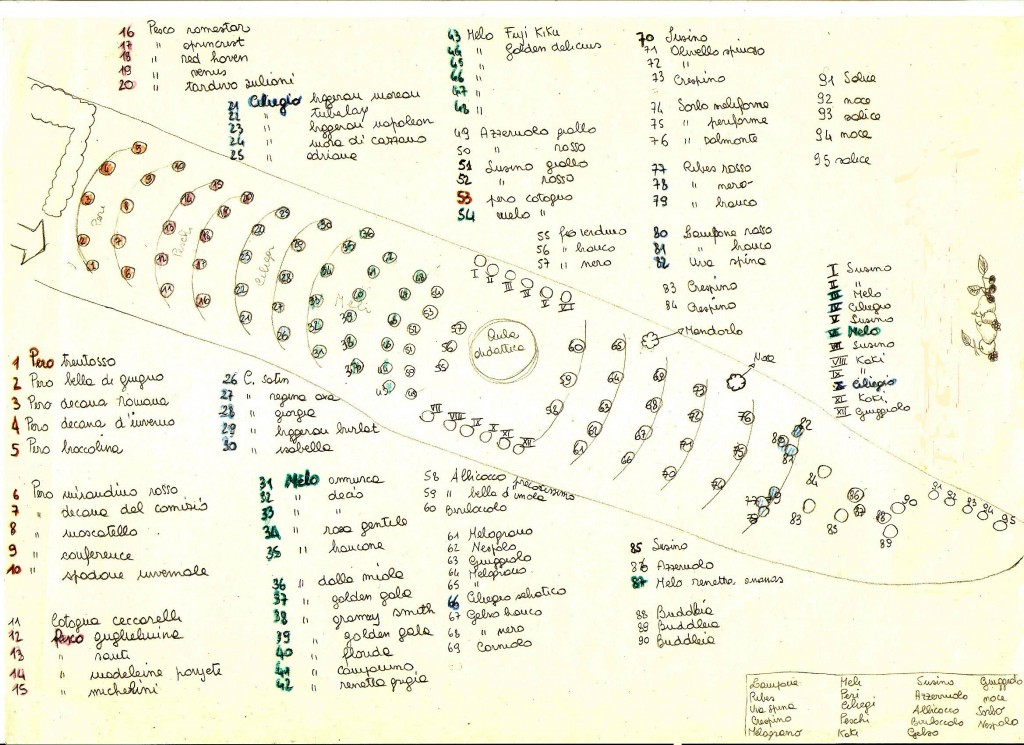 16 Pesco romestar
17 " springcrest
18 " red haven
19 " venus
20 " tardivo zuliani
21 Ciliegio biggereau moreau
22 "
23 " biggereau napoleon
24 " mora di cazzano
25 " adriana
43 Melo Fuji Kiku
44 " golden delicius
45 "
46 "
47 "
48 "
49 Azzeruolo giallo
50 " rosso
51 Susino giallo
52 " rosso
53 pero cotogno
54 melo "
55 fico verdino
56 " bianco
57 " nero
70 Susino
71 Olivello spinoso
72 "
73 Crespino
74 Sorbo meliforme
75 " periforme
76 " dalmonte
77 Ribes rosso
78 " nero
79 " bianco
80 Lampone rosso
81 " bianco
82 Uva spina
83 Crespino
84 Crespino
91 Salice
92 noce
93 salice
94 noce
95 salice
I Susino
II "
III Melo
IV Ciliegio
V Susino
VI Melo
VII Susino
VIII Kaki
IX "
X Ciliegio
XI Kaki
XII Giuggiolo
Peri
Peschi
Ciliegi
Aula
didattica
Mandorlo
Noce
1 Pero trentosso
2 Pero bella di giugno
3 Pero decana romana
4 Pero decana d'inverno
5 Pero broccolina
6 Pero mirandino rosso
7 " decana del comizio
8 " moscatello
9 " conference
10 " spadone invernale
11 Cotogna ceccarelli
12 Pesco guglielmina
13 " santi
14 " madeleine pouyete
15 " michelini
26 C. satin
27 " regina
28 " giorgia
29 " biggereau burlat
30 " isabella
31 Melo annurca
32 " decio
33 " "
34 " rosa gentile
35 "
36 " dalla miola
37 " golden gala
38 " granny smith
39 " golden gala
40 " florida
41 " campanino
42 " renetta grigia
58 Albicocco preciosissimo
59 " bella d'imola
60 Biricoccolo
61 Melograno
62 Nespolo
63 Giuggiolo
64 Melograno
65 "
66 Ciliegio selvatico
67 Gelso bianco
68 " nero
69 Corniolo
85 Susino
86 Azzeruolo
87 Melo renetta ananas
88 Buddleia
89 Buddleia
90 Buddleia
Lampone Meli Susino Giuggiolo
Ribes Peri Azzeruolo noce
Uva spina Ciliegi Albicocco Sorbo
Crespino Peschi Biricoccolo Nespolo
Melograno Kaki Gelso